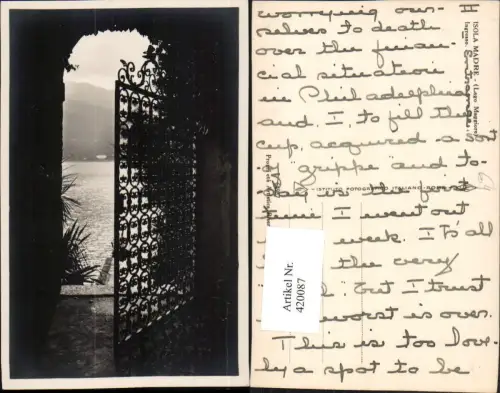 II
worrying our-
selves to death
over the finan-
cial situation
in Philadelphia
and I, to fill the
cup, acquired a sort
of "grippe" and to-
day is the first
time I went out
week. It's all
the very
". but I trust
worst is over.
This is too love-
ly a spot to be
ISOLA MADRE - (Lago Maggiore)
Ingresso
ISTITUTO FOTOGRAFICO ITALIANO - ROMA
Artikel Nr.
420087